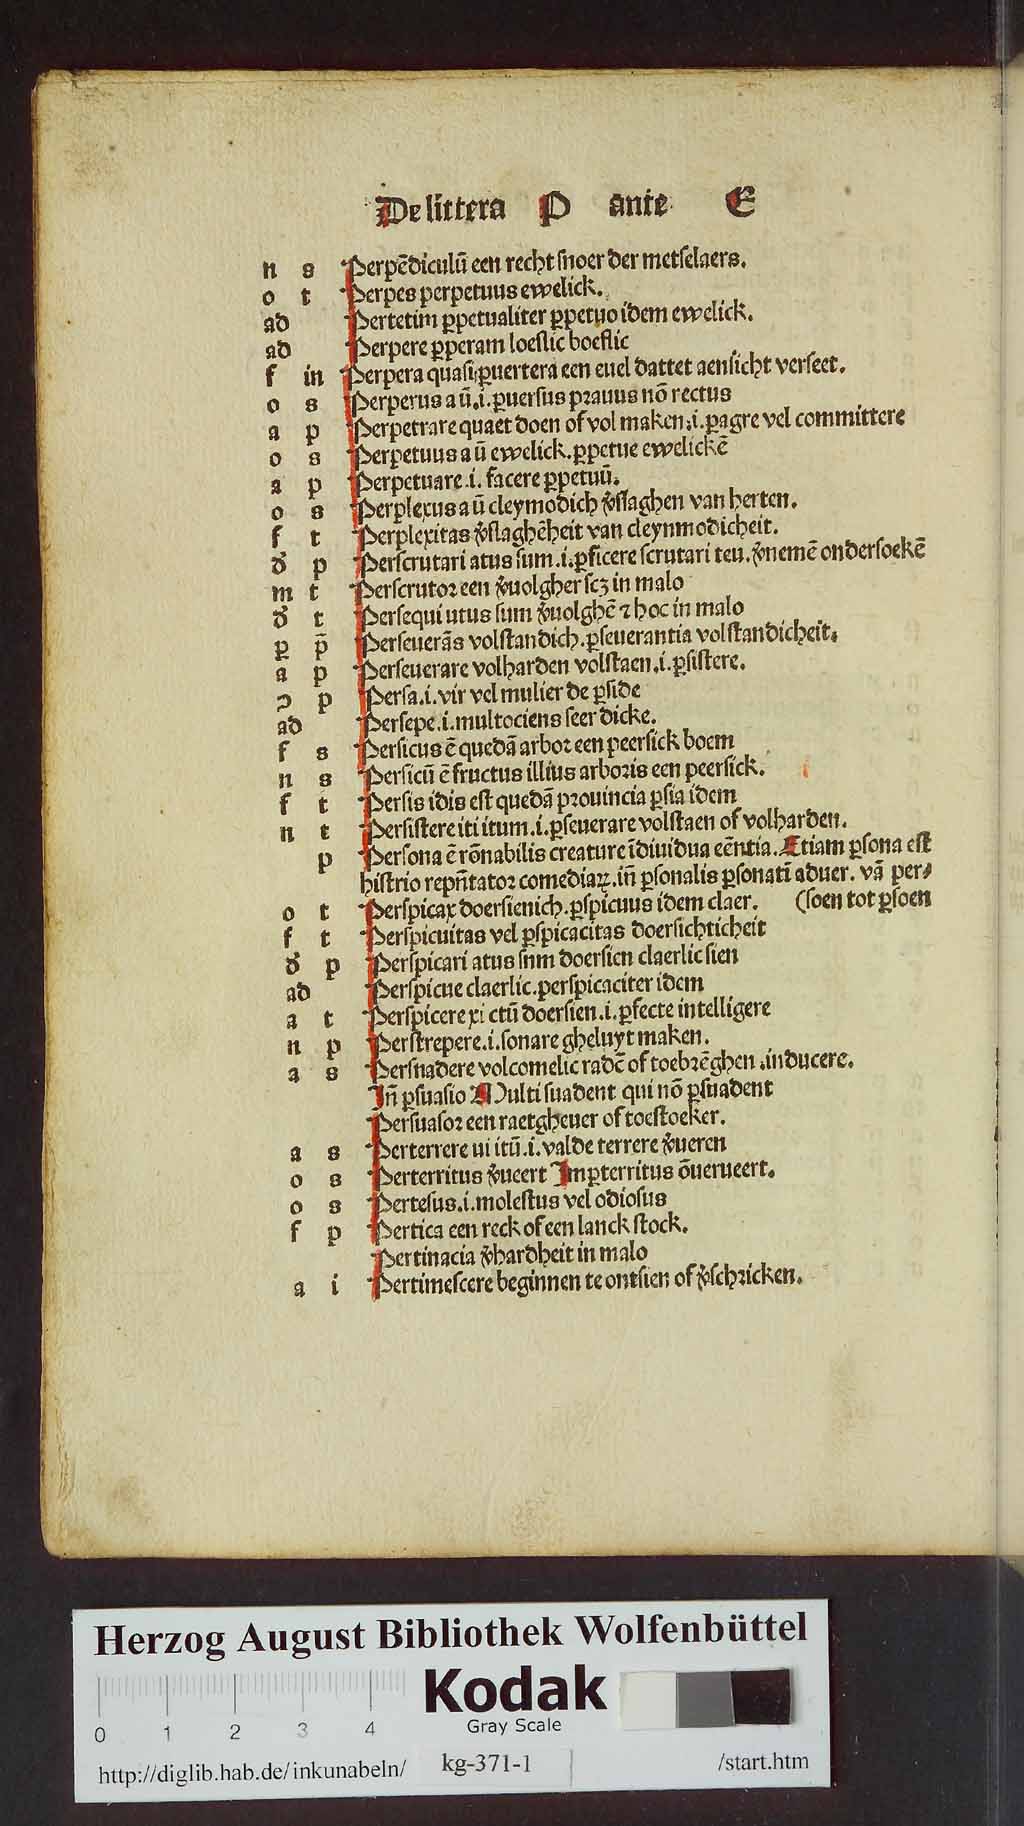 De littera P ante E
n s Perpēdiculū een recht ſnoer der metſelaers.
o t Perpes perpetuus ewelick.
ad Pertetim ꝑpetualiter ꝑpetuo idem ewelick.
ad Perpere ꝑperam loeſlic boeſlic
f in Perpera quaſi ꝑuertera een euel dattet aenſicht verſeet.
o s Perperus a ū.i. ꝑuerſus prauus nō rectus
a p Perpetrare quaet doen of vol maken.i. ꝑagre vel committere
o s Perpetuus a ū ewelick. ꝑpetue ewelickē
a p Perpetuare .i. facere ꝑpetuū.
o s Perplexus a ū cleymodich v̄ſlaghen van herten.
f t Perplexitas v̄ſlaghēheit van cleynmodicheit.
ð p Perſcrutari atus ſum .i. ꝑficere ſcrutari teu. v̄nemē onderſoekē
m t Perſcrutor een v̄uolgher ſcꝫ in malo
ð t Perſequi utus ſum v̄uolghē ⁊ hoc in malo
ꝑ p̄ Perſeuerās volſtandich. ꝑſeuerantia volſtandicheit.
a p Perſeuerare volharden volſtaen.i. ꝑſiſtere.
ↄ p Perſa.i. vir vel mulier de ꝑſide
ad Perſepe.i. multociens ſeer dicke.
f s Perſicus ē quedā arbor een peerſick boem
n s Perſicū ē fructus illius arboris een peerſick.
f t Perſis idis eſt quedā prouincia ꝑſia idem
n t Perſiſtere iti itum.i. ꝑſeuerare volſtaen of volharden.
p Perſona ē rōnabilis creature īdiuidua eēntia. Etiam ꝑſona eſt
hiſtrio repn̄tator comediaꝝ. in̄ ꝑſonalis ꝑſonatī aduer. vā per⸗
o t Perſpicax doerſienich. ꝑſpicuus idem claer. (ſoen tot ꝑſoen
f t Perſpicuitas vel ꝑſpicacitas doerſichticheit
ð p Perſpicari atus ſnm doerſien claerlic ſien
ad Perſpicue claerlic. perſpicaciter idem
a t Perſpicere xi ctū doerſien.i. ꝑfecte intelligere
n p Perſtrepere.i. ſonare gheluyt maken.
a s Perſnadere volcomelic radē of toebrēghen .inducere.
In̄ ꝑſuaſio Multi ſuadent qui nō ꝑſuadent
Perſuaſor een raetgheuer of toeſtoeker.
a s Perterrere ui itū.i. valde terrere v̄ueren
o s Perterritus v̄ueert Imꝑterritus ōuerueert.
o s Perteſus.i. moleſtus vel odioſus
f p Pertica een reck of een lanck ſtock.
Pertinacia v̄hardheit in malo
a i Pertimeſcere beginnen te ontſien of v̄ſchricken.
Herzog August Bibliothek Wolfenbüttel
Kodak
Gray Scale
0 1 2 3 4
http://diglib.hab.de/inkunabeln/ kg-371-1 /start.htm